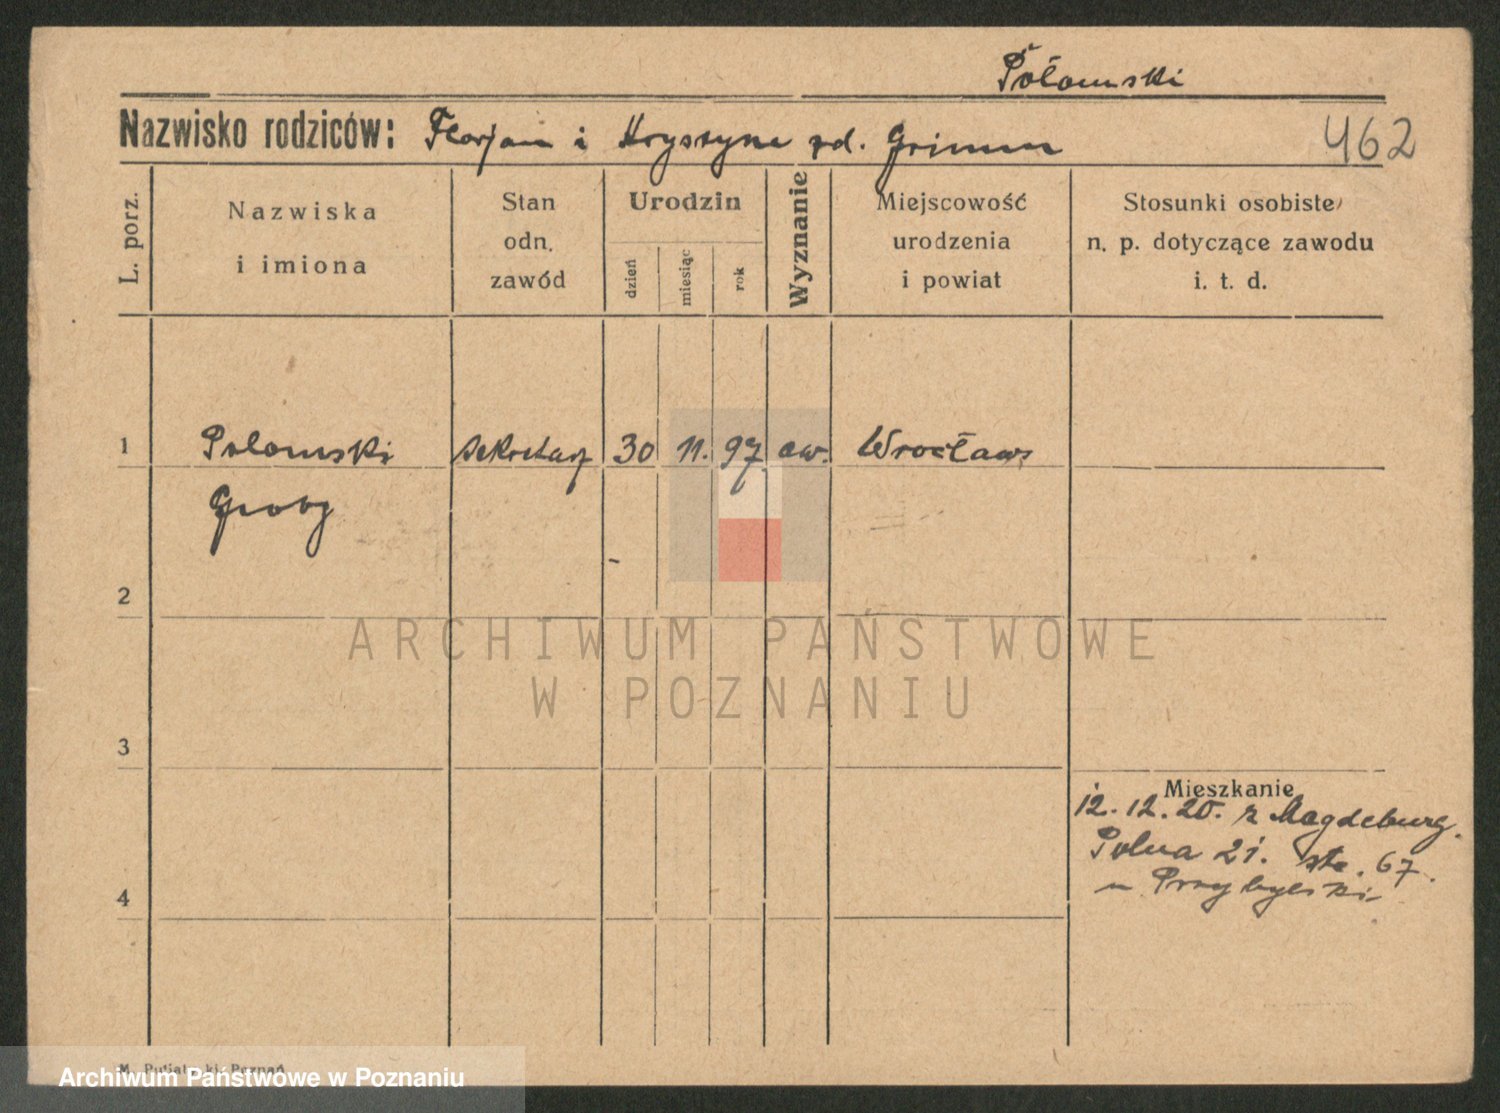 Połomski
Nazwisko rodziców: Florjan i Krystyna zd. Grimm
462
L. porz.
Nazwiska
i imiona
Stan
odn.
zawód
Urodzin
dzień
miesiąc
rok
Wyznanie
Miejscowość
urodzenia
i powiat
Stosunki osobiste
n. p. dotyczące zawodu
i. t. d.
1 Polomski sekretarz 30 11. 97. ew. Wrocław
Georg
2
ARCHIWUM PAŃSTWOWE
W POZNANIU
3
Mieszkanie
12.12.20. z Magdeburg.
Polna 21. 67.
u Przybylski
4
M. Putiatycki Poznań
Archiwum Państwowe w Poznaniu